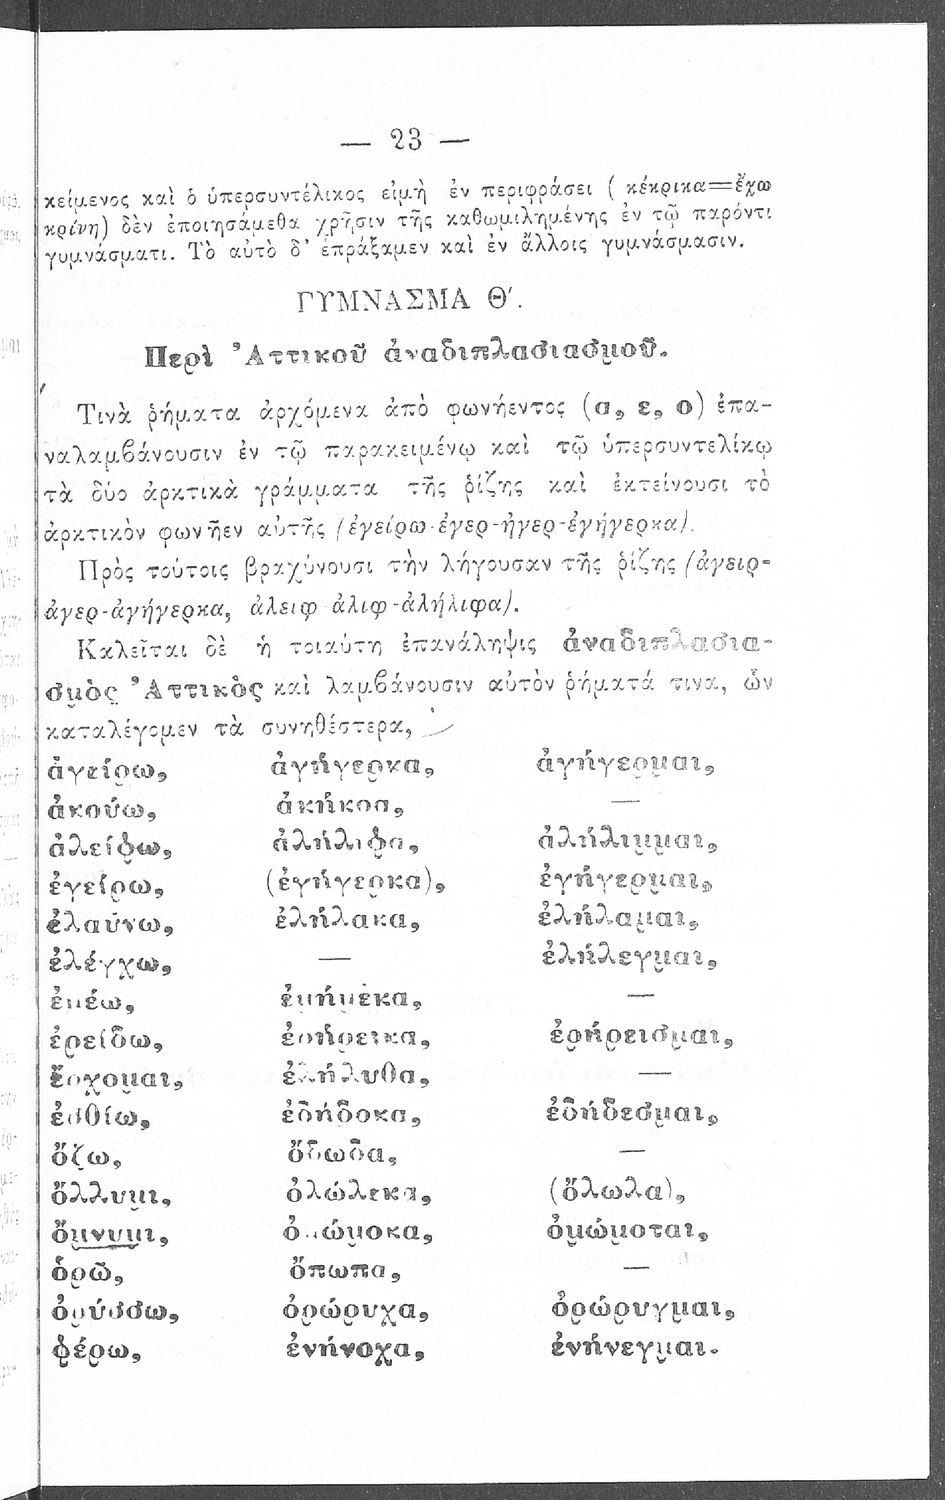 — 23 —
κείμενος καὶ ὁ ὑπερσυντέλικος εἰμὴ ἐν περιφράσει ( κέκρικα=ἔχω
κρίνη) δὲν ἐποιησάμεθα χρῆσιν τῆς καθωμιλημένης ἐν τῷ παρόντι
γυμνάσματι. Τὸ αὐτὸ δ' ἐπράξαμεν καὶ ἐν ἄλλοις γυμνάσμασιν.
ΓΥΜΝΑΣΜΑ Θ'.
Περὶ Ἀττικοῦ ἀναδιπλασιασμοῦ.
Τινὰ ῥήματα ἀρχόμενα ἀπὸ φωνήεντος (α, ε, ο) ἐπα-
ναλαμβάνουσιν ἐν τῷ παρακειμένῳ καὶ τῷ ὑπερσυντελίκῳ
τὰ δύο ἀρκτικὰ γράμματα τῆς ῥίζης καὶ ἐκτείνουσι τὸ
ἀρκτικὸν φωνῆεν αὐτῆς (ἐγείρω-ἐγερ-ἠγερ-ἐγήγερκα).
Πρὸς τούτοις βραχύνουσι τὴν λήγουσαν τῆς ῥίζης (ἀγειρ-
ἀγερ-ἀγήγερκα, ἀλειφ ἀλιφ-ἀλήλιφα).
Καλεῖται δὲ ἡ τοιαύτη ἐπανάληψις ἀναδιπλασια-
σμὸς Ἀττικὸς καὶ λαμβάνουσιν αὐτὸν ῥήματά τινα, ὧν
καταλέγομεν τὰ συνηθέστερα,
ἀγείρω, ἀγήγερκα, ἀγήγερμαι,
ἀκούω, ἀκήκοα, —
ἀλείφω, ἀλήλιφα, ἀλήλιμμαι,
ἐγείρω, (ἐγήγερκα), ἐγήγερμαι,
ἐλαύνω, ἐλήλακα, ἐλήλαμαι,
ἐλέγχω, — ἐλήλεγμαι,
ἐμέω, ἐμήμεκα, —
ἐρείδω, ἐρήρεικα, ἐρήρεισμαι,
ἔρχομαι, ἐλήλυθα, —
ἐσθίω, ἐδήδοκα, ἐδήδεσμαι,
ὄζω, ὄδωδα, —
ὄλλυμι, ὀλώλεκα, (ὄλωλα),
ὄμνυμι, ὀμώμοκα, ὀμώμοται,
ὁρῶ, ὄπωπα, —
ὀρύσσω, ὀρώρυχα, ὀρώρυγμαι,
φέρω, ἐνήνοχα, ἐνήνεγμαι.